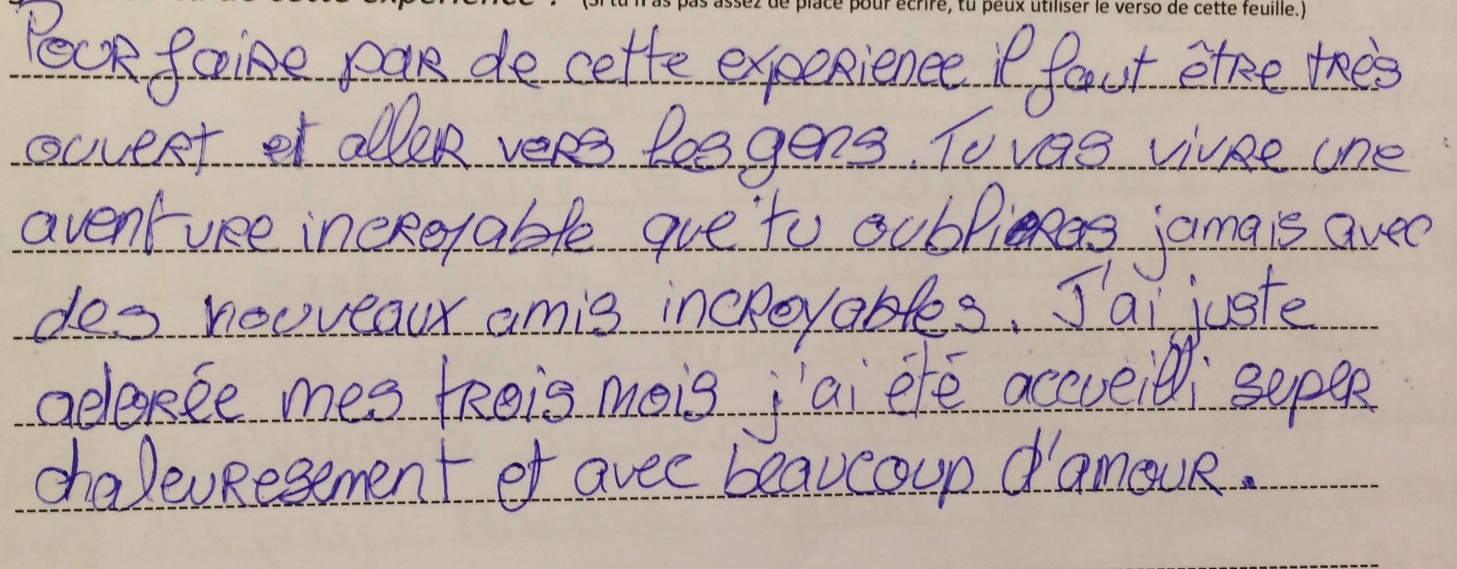 de cette expérience ? (Si tu n'as pas assez de place pour écrire, tu peux utiliser le verso de cette feuille.)
Pour faire par de cette experience il faut être très
ouvert et aller vers les gens. Tu vas vivre une
aventure incroyable que tu oublieras jamais avec
des nouveaux amis incroyables. J'ai juste
adorée mes trois mois j'ai été accueilli super
chaleuresement et avec beaucoup d'amour.